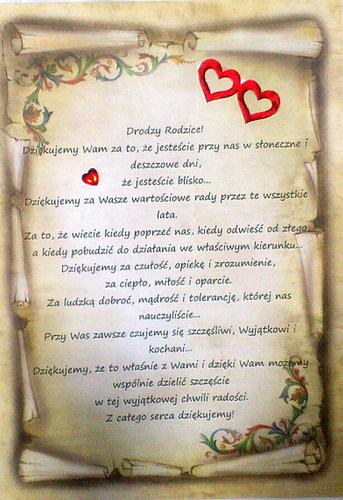 Drodzy Rodzice!
Dziękujemy Wam za to, że jesteście przy nas w słoneczne i
deszczowe dni,
że jesteście blisko...
Dziękujemy za Wasze wartościowe rady przez te wszystkie
lata.
Za to, że wiecie kiedy poprzeć nas, kiedy odwieść od złego
a kiedy pobudzić do działania we właściwym kierunku...
Dziękujemy za czułość, opiekę i zrozumienie,
za ciepło, miłość i oparcie.
Za ludzką dobroć, mądrość i tolerancję, której nas
nauczyliście...
Przy Was zawsze czujemy się szczęśliwi, Wyjątkowi i
kochani...
Dziękujemy, że to właśnie z Wami i dzięki Wam możemy
wspólnie dzielić szczęście
w tej wyjątkowej chwili radości.
Z całego serca dziękujemy!